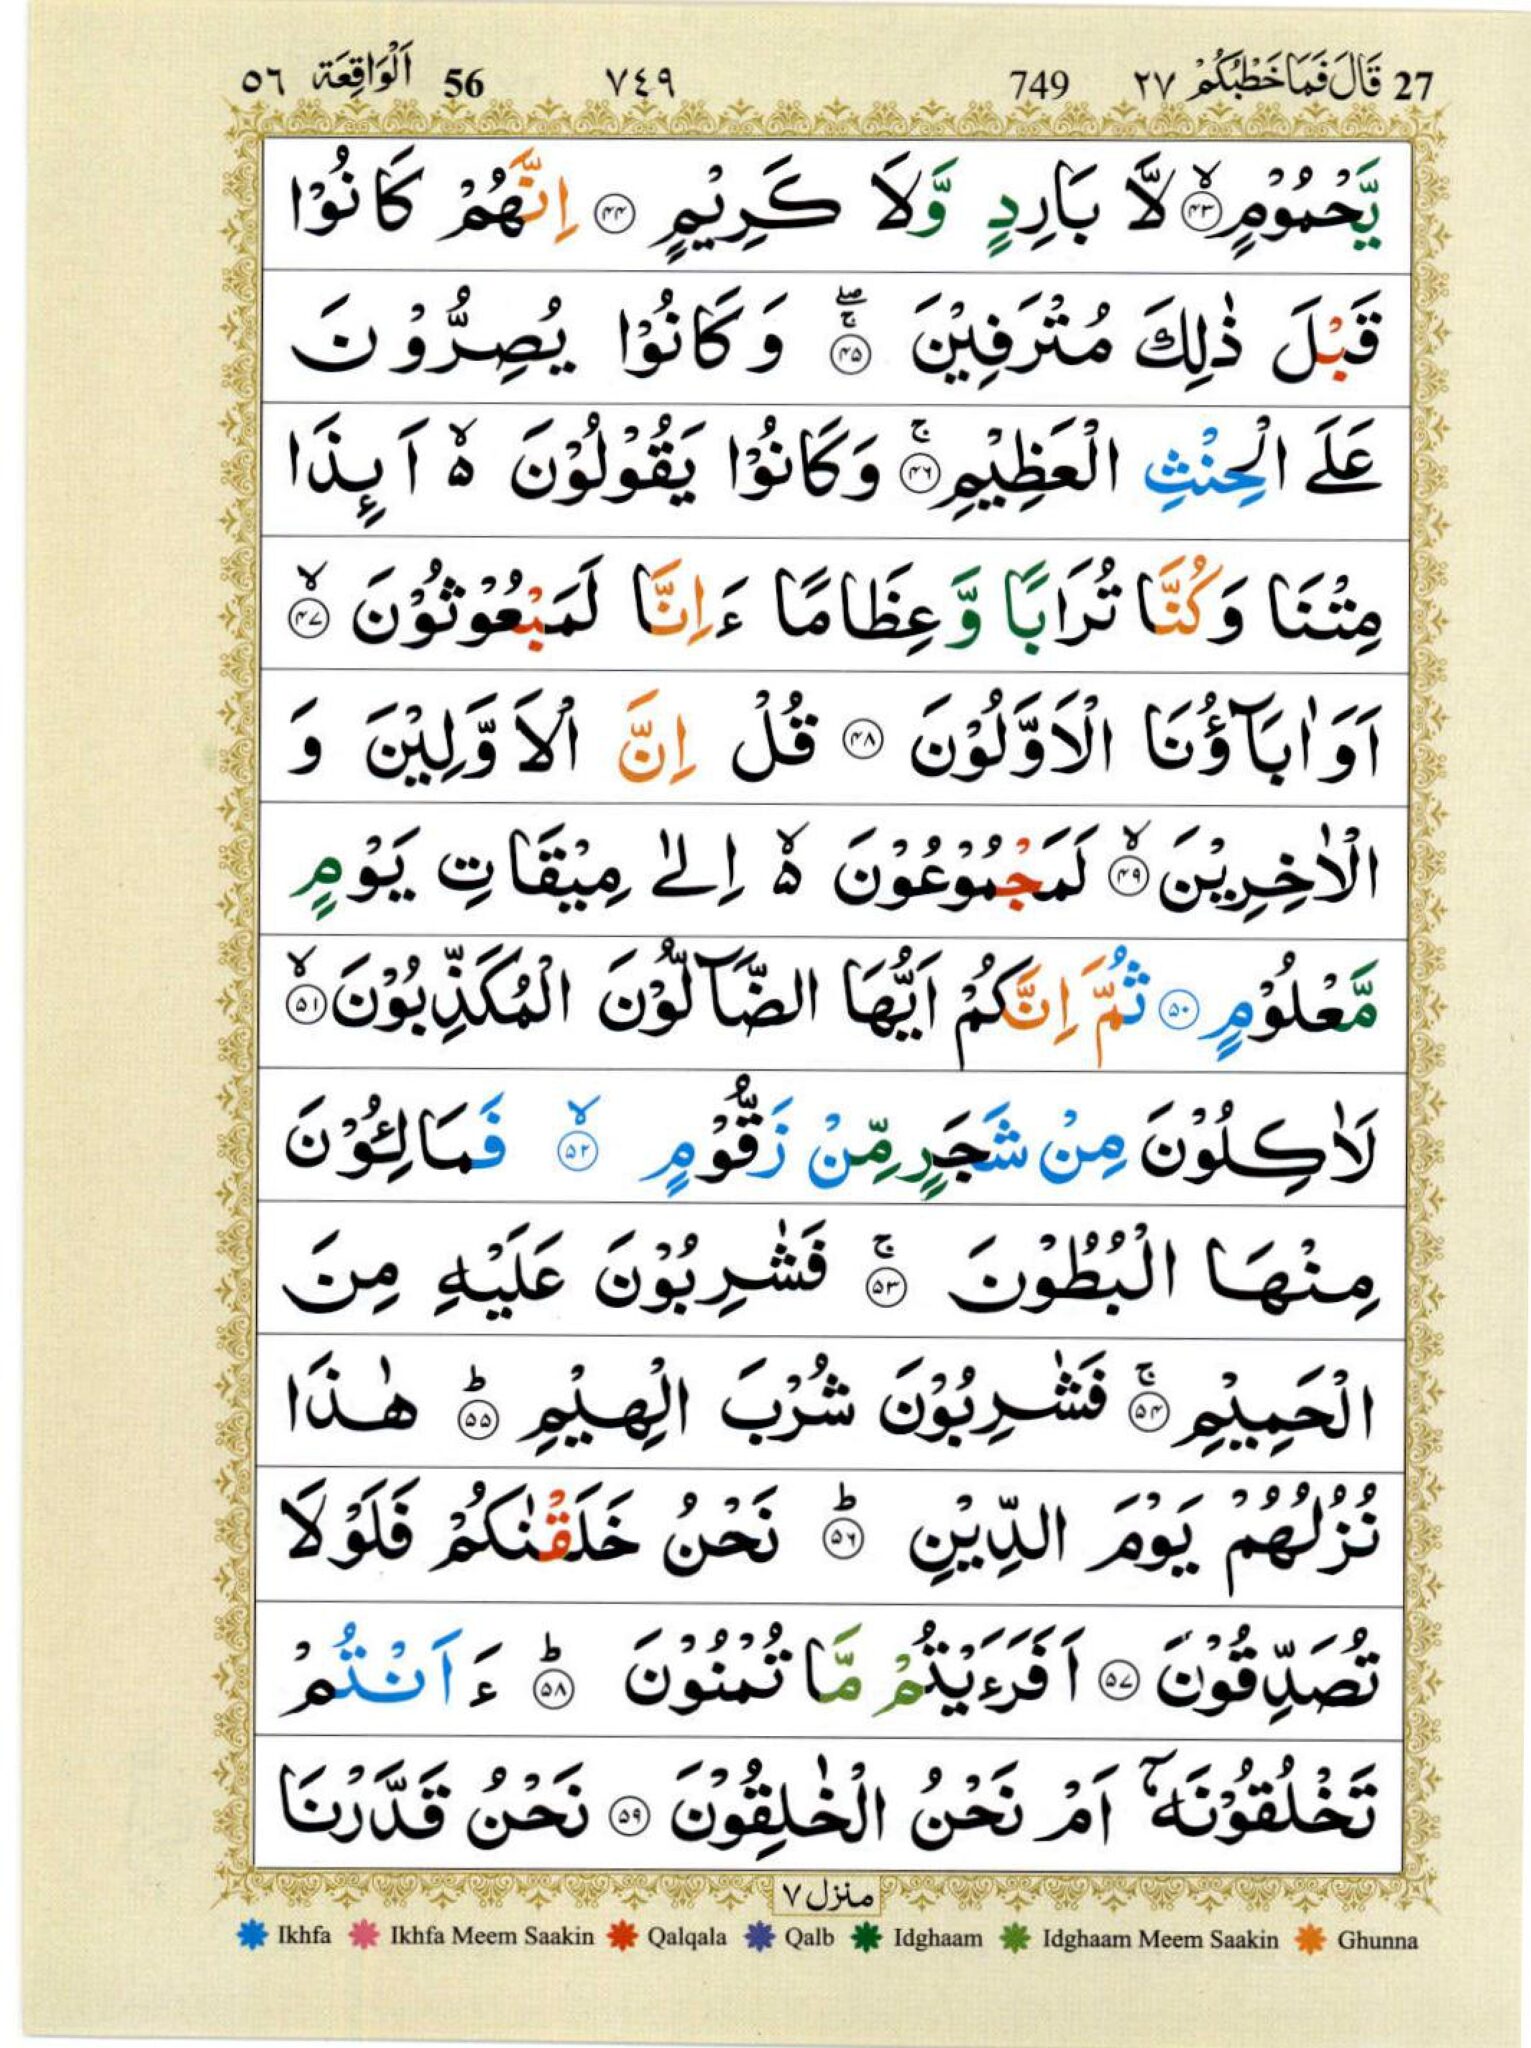 27 قَالَ فَمَا خَطْبُكُمْ ٢٧ 749 ٧٤٩ 56 اَلْوَاقِعَة ٥٦
يَّحْمُوْمٍۙ ﴿۴۳﴾ لَّا بَارِدٍ وَّلَا كَرِيْمٍ ﴿۴۴﴾ اِنَّهُمْ كَانُوْا
قَبْلَ ذٰلِكَ مُتْرَفِيْنَ ۚۖ ﴿۴۵﴾ وَكَانُوْا يُصِرُّوْنَ
عَلَى الْحِنْثِ الْعَظِيْمِۚ ﴿۴۶﴾ وَكَانُوْا يَقُوْلُوْنَ ۙ۬ اَئِذَا
مِتْنَا وَكُنَّا تُرَابًا وَّعِظَامًا ءَاِنَّا لَمَبْعُوْثُوْنَ ۙ ﴿۴۷﴾
اَوَاٰبَآؤُنَا الْاَوَّلُوْنَ ﴿۴۸﴾ قُلْ اِنَّ الْاَوَّلِيْنَ وَ
الْاٰخِرِيْنَ ۙ ﴿۴۹﴾ لَمَجْمُوْعُوْنَ ۙ۬ اِلٰى مِيْقَاتِ يَوْمٍ
مَّعْلُوْمٍ ﴿۵۰﴾ ثُمَّ اِنَّكُمْ اَيُّهَا الضَّآلُّوْنَ الْمُكَذِّبُوْنَ ۙ ﴿۵۱﴾
لَاٰكِلُوْنَ مِنْ شَجَرٍ مِّنْ زَقُّوْمٍ ۙ ﴿۵۲﴾ فَمَالِئُوْنَ
مِنْهَا الْبُطُوْنَ ۚ ﴿۵۳﴾ فَشٰرِبُوْنَ عَلَيْهِ مِنَ
الْحَمِيْمِ ۚ ﴿۵۴﴾ فَشٰرِبُوْنَ شُرْبَ الْهِيْمِ ؕ ﴿۵۵﴾ هٰذَا
نُزُلُهُمْ يَوْمَ الدِّيْنِ ؕ ﴿۵۶﴾ نَحْنُ خَلَقْنٰكُمْ فَلَوْلَا
تُصَدِّقُوْنَ ﴿۵۷﴾ اَفَرَءَيْتُمْ مَّا تُمْنُوْنَ ؕ ﴿۵۸﴾ ءَاَنْتُمْ
تَخْلُقُوْنَهٗۤ اَمْ نَحْنُ الْخٰلِقُوْنَ ﴿۵۹﴾ نَحْنُ قَدَّرْنَا
منزل ٧
Ikhfa Ikhfa Meem Saakin Qalqala Qalb Idghaam Idghaam Meem Saakin Ghunna